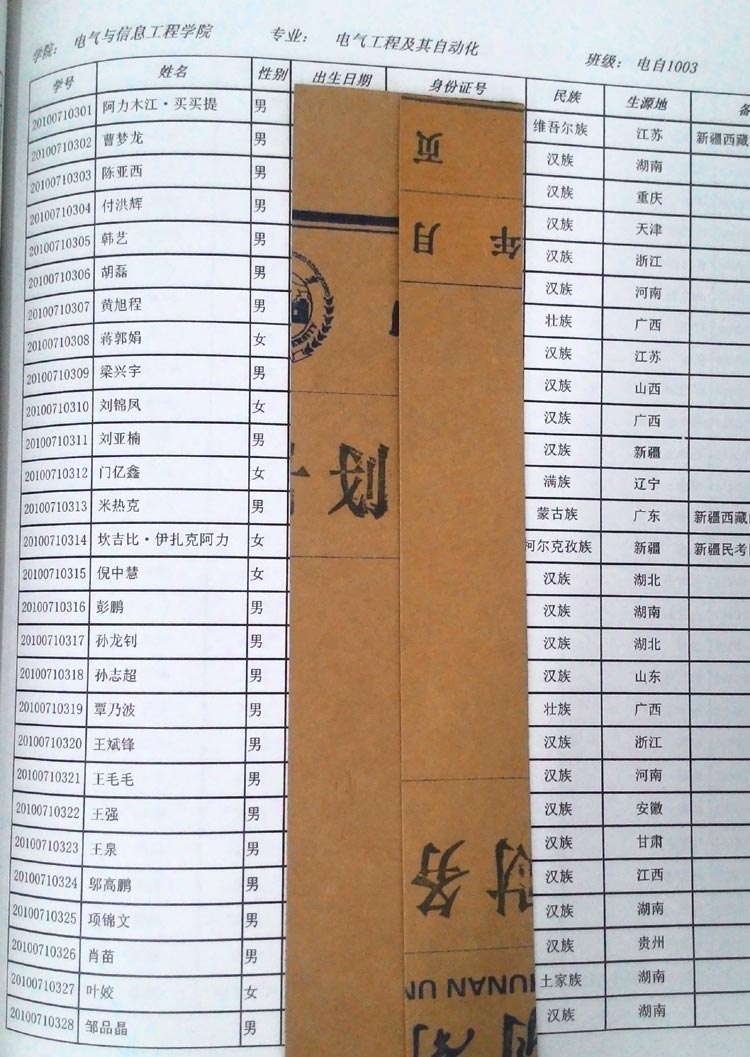 学院： 电气与信息工程学院 专业： 电气工程及其自动化 班级： 电自1003
学号 姓名 性别 出生日期 身份证号 民族 生源地 备
20100710301 阿力木江·买买提 男 维吾尔族 江苏 新疆西藏
20100710302 曹梦龙 男 汉族 湖南
20100710303 陈亚西 男 汉族 重庆
20100710304 付洪辉 男 汉族 天津
20100710305 韩艺 男 汉族 浙江
20100710306 胡磊 男 汉族 河南
20100710307 黄旭程 男 壮族 广西
20100710308 蒋郭娟 女 汉族 江苏
20100710309 梁兴宇 男 汉族 山西
20100710310 刘锦凤 女 汉族 广西
20100710311 刘亚楠 男 汉族 新疆
20100710312 门亿鑫 女 满族 辽宁
20100710313 米热克 男 蒙古族 广东 新疆西藏
20100710314 坎吉比·伊扎克阿力 女 柯尔克孜族 新疆 新疆民考
20100710315 倪中慧 女 汉族 湖北
20100710316 彭鹏 男 汉族 湖南
20100710317 孙龙钊 男 汉族 湖北
20100710318 孙志超 男 汉族 山东
20100710319 覃乃波 男 壮族 广西
20100710320 王斌锋 男 汉族 浙江
20100710321 王毛毛 男 汉族 河南
20100710322 王强 男 汉族 安徽
20100710323 王泉 男 汉族 甘肃
20100710324 邬高鹏 男 汉族 江西
20100710325 项锦文 男 汉族 湖南
20100710326 肖苗 男 汉族 贵州
20100710327 叶姣 女 土家族 湖南
20100710328 邹品晶 男 汉族 湖南
页
年 月
财务
HUNAN UN